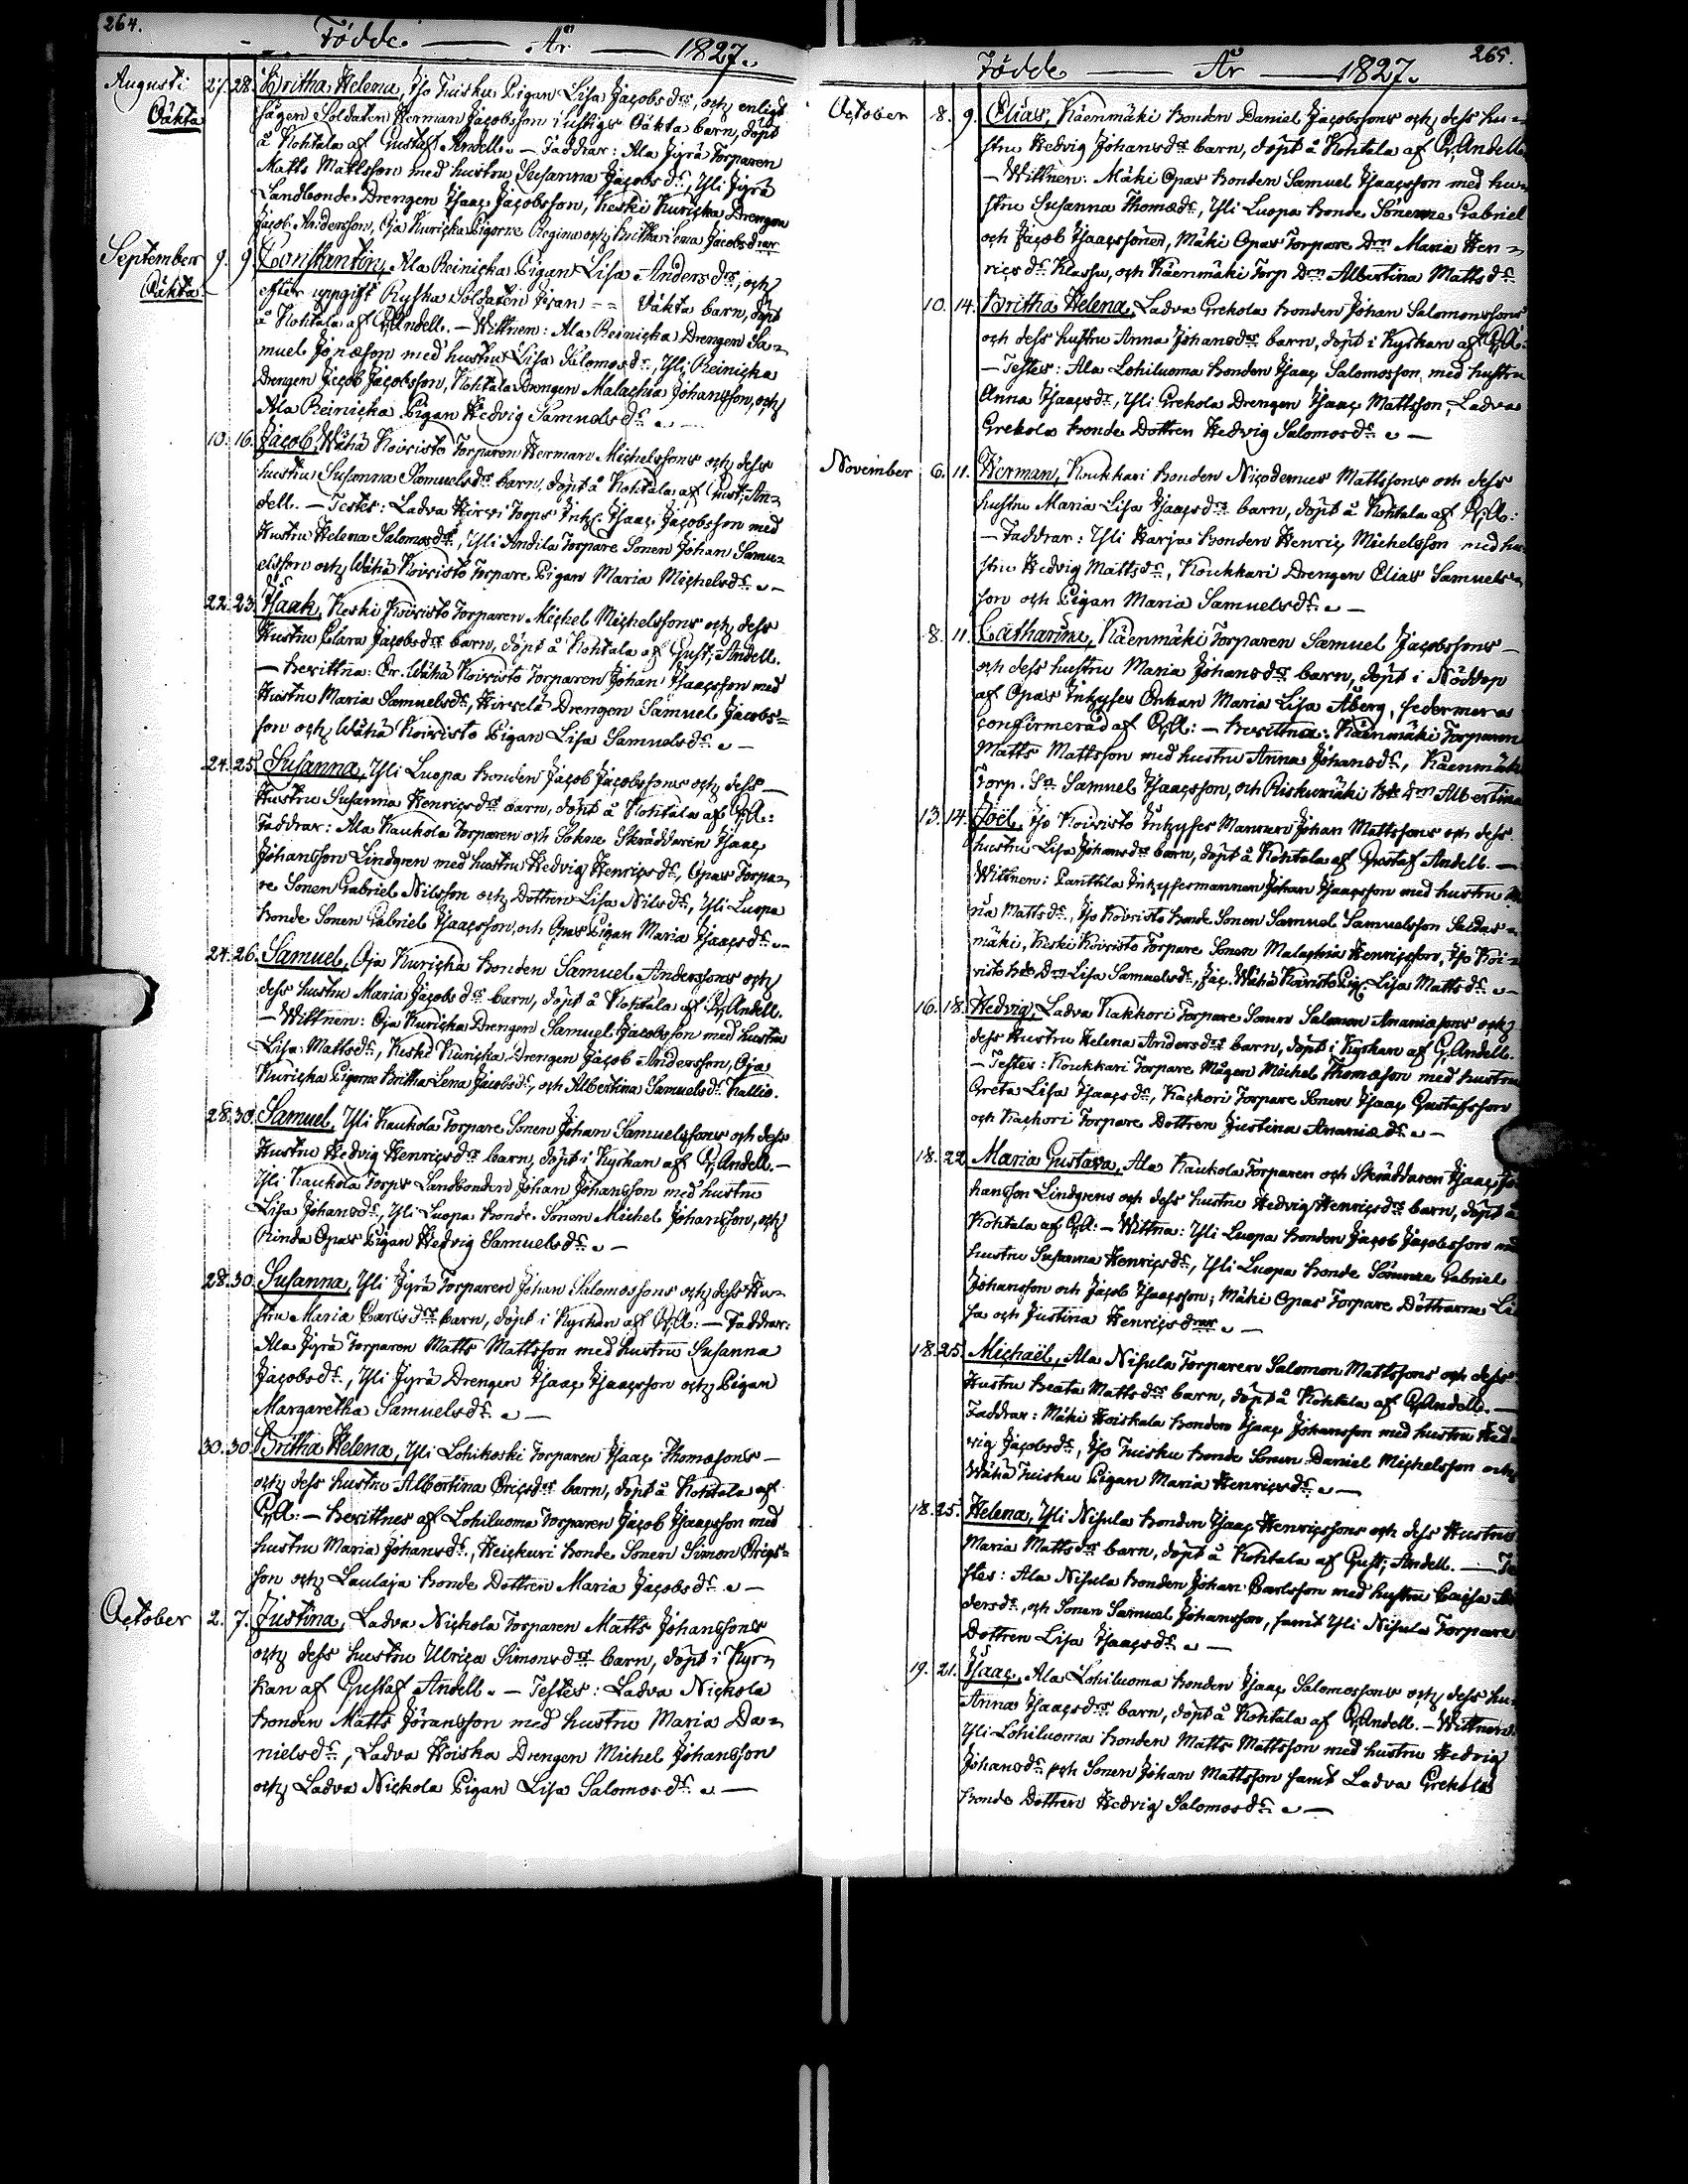 264.
Födde — År — 1827.
Augusti 27. 28. Britha Helena, Iso Tuisku Pigan Lisa Jacobsdrs, och enligt
Oäkta sägen Soldaten Herman Jacobsson Lustigs Oäkta barn, döpt
å Kohtala af Gustaf Andell. — Faddrar: Ala Jyrä Torparen
Matts Mattsson med hustru Susanna Jacobs dr, Yli Jyrä
Landbonde Drengen Isaac Jacobsson, Keski Kuricka Drengen
Jacob Andersson, Oja Kuricka Pigorne Regina och Britha Lena Jacobsdrar
September 9. 9. Constantin, Ala Reinicka Pigan Lisa Andersdrs, och
Oäkta. efter uppgift Ryska Soldaten Ivan == Oäkta barn, döpt
å Kohtala af G. Andell. — Wittnen: Ala Reinicka Drengen Sa=
muel Jonæson med hustru Lisa Salomosdr, Yli Reinicka
Drengen Jacob Jacobsson, Kohtala Drengen Malachia Johansson, och
Ala Reinicka Pigan Hedvig Samuelsdr. —
10. 16. Jacob, Wähä Koivisto Torparen Herman Michelssons och dess
hustru Susanna Samuelsdrs barn, döpt å Kohtala af Gust. An=
dell. — Testes: Ladva Hirvi Torps Inhs. Isaac Jacobsson med
Hustru Helena Salomosdr, Yli Andila Torpare Sonen Johan Samu=
elsson och Wähä Koivisto Torpare Pigan Maria Michelsdr. —
22. 23. Isaak, Keski Koivisto Torparen Michel Michelssons och dess
Hustru Clara Jacobsdrs barn, döpt å Kohtala af Gust. Andell.
— bevittna: Wähä Koivisto Torparen Johan Isaacsson med
Hustru Maria Samuelsdr, Hirvelä Drengen Samuel Jacobs=
son och Wähä Koivisto Pigan Lisa Samuelsdr. —
24. 25. Susanna, Yli Luopa bonden Jacob Jacobssons och dess —
Hustru Susanna Henricsdrs barn, döpt å Kohtala af G.A:
Faddrar: Ala Kaukola Torparen och Sokne Skräddaren Isaac
Johansson Lindgren med hustru Hedvig Henricsdr, Opas Torpa=
re Sonen Gabriel Nilsson och Dottren Lisa Nilsdr, Yli Luopa
bonde Sonen Gabriel Isaacsson, och Opas Pigan Maria Isaacsdr. —
24. 26. Samuel, Oja Kuricka bonden Samuel Anderssons och
dess hustru Maria Jacobs drs barn, döpt å Kohtala af G. Andell.
— Wittnen: Oja Kuricka Drengen Samuel Jacobsson med hustru
Lisa Mattsdr, Keski Kuricka Drengen Jacob Andersson, Oja
Kuricka Pigorne Britha Lena Jacobsdr, och Albertina Samuelsdr Kallio.
28. 30. Samuel, Yli Kaukola Torpare Sonen Johan Samuelssons och dess
Hustru Hedvig Henricsdrs barn, döpt i Kyrkan af G. Andell. —
Yli Kaukola Torps Landbonden Johan Johansson med hustru
Lisa Johansdr, Yli Luopa bonde Sonen Michel Johansson, och
Rinda Opas Pigan Hedvig Samuelsdr. —
28. 30. Susanna, Yli Jyrä Torparen Johan Salomossons och dess Hu=
stru Maria Carlsdrs barn, döpt i Kyrkan af G.A: — Faddrar:
Ala Jyrä Torparen Matts Mattsson med hustru Susanna
Jacobsdr, Yli Jyrä Drengen Isaac Isaacsson och Pigan
Margaretha Samuelsdr. —
30. 30. Britha Helena, Yli Lohikoski Torparen Isaac Thomæsons —
och dess hustru Albertina Ericsdrs barn, döpt å Kohtala af
G.A: — bevittnes af Lohiluoma Torparen Jacob Isaacsson med
hustru Maria Johansdr, Heickuri bonde Sonen Simon Erics=
son och Laulaja bonde Dottren Maria Jacobsdr. —
October 2. 7. Justina, Ladva Nickola Torparen Matts Johanssons
och dess hustru Ulrica Simonsdrs barn, döpt i Kyr=
kan af Gustaf Andell. — Testes: Ladva Nickola
bonden Matts Jöransson med hustru Maria Da=
nielsdr, Ladva Hoiska Drengen Michel Johansson
och Ladva Nickola Pigan Lisa Salomos dr. —
265.
Födde — År — 1827.
October 8. 9. Elias, Käenmäki bonden Daniel Jacobssons och dess hu=
stru Hedvig Johansdrs barn, döpt å Kohtala af G. Andell
— Wittnen: Mäki Opas bonden Samuel Isaacsson med hu=
stru Susanna Thomædr, Yli Luopa bonde Sönerne Gabriel
och Jacob Isaacssoner, Mäki Opas Torpare Drn Maria Hen=
rics dr Klassu, och Käenmäki Torp. Drn Albertina Mattsdr
10. 14. Britha Helena, Ladva Grekola bonden Johan Salomonssons
och dess hustru Anna Johansdrs barn, döpt i Kyrkan af G.A:
— Testes: Ala Lohiluoma bonden Isaac Salomosson, med hustru
Anna Isaacsdr, Yli Grekola Drengen Isaac Mattsson, Ladva
Grekola bonde Dottren Hedvig Salomosdr. —
November 6. 11. Herman, Koukkari bonden Nicodemus Mattssons och dess
hustru Maria Lisa Isaacsdrs barn, döpt å Kohtala af G.A:
— Faddrar: Yli Harja bonden Henric Michelsson med hu=
stru Hedvig Mattsdr, Koukkari Drengen Elias Samuels=
son och Pigan Maria Samuelsdr. —
8. 11. Catharina, Käenmäki Torparen Samuel Jacobssons —
och dess hustru Maria Johansdrs barn, döpt i Nöddop
af Opas Inhyses Enkan Maria Lisa Åberg, sedermera
confirmerad af G.A: — bevittna: Käenmäki Torparen
Matts Mattsson med hustru Anna Johansdr, Käenmäki
Torp. Sn Samuel Isaacsson, och Riskumäki bde drn Albertina
13. 14. Joël, Iso Koivisto Inhyses Mannen Johan Mattssons och dess
hustru Lisa Johansdrs barn, döpt å Kohtala af Gustaf Andell. —
Wittnen: Panttila Inhysesmannen Johan Isaacsson med hustru
Mattsdr, Iso Koivisto bonde Sonen Samuel Samuelsson
mäki, Keski Koivisto Torpare Sonen Malachia Henricsson, Iso Koi=
visto bde Drn Lisa Samuelsdr, Wähä Koivisto Pig. Lisa Mattsdr. —
16. 18. Hedvig, Ladva Kakkori Torpare Sonen Salomon Ananiæsons och
dess Hustru Helena Andersdrs barn, döpt i Kyrkan af G. Andell.
— Testes: Koukkari Torpare Mågen Michel Thomæson med hustru
Greta Lisa Isaacsdr, Kackori Torpare Sonen Isaac Gustafsson
och Kackori Torpare Dottren Justina Ananiædr. —
18. 22. Maria Gustava, Ala Kaukola Torparen och Skräddaren Isaac Jo
hansson Lindgrens och dess hustru Hedvig Henricsdrs barn, döpt å
Kohtala af G.A: — Wittna: Yli Luopa bonden Jacob Jacobsson med
hustru Susanna Henricsdr, Yli Luopa bonde Sönerna Gabriel
Johansson och Jacob Isaacsson; Mäki Opas Torpare Döttrarna Li
sa och Justina Henricsdrar. —
18. 25. Michaël, Ala Nisula Torparen Salomon Mattssons och dess
Hustru Beata Mattsdrs barn, döpt å Kohtala af G. Andell. —
Faddrar: Mäki Hoiskala bonden Isaac Johansson med hustru Hed
vig Jacobsdr, Iso Tuisku bonde Sonen Daniel Michelsson och
Wähä Tuisku Pigan Maria Henricsdr. —
18. 25. Helena, Yli Nisula bonden Isaac Henricssons och dess Hustru
Maria Mattsdrs barn, döpt å Kohtala af Gust. Andell. — Te
stes: Ala Nisula bonden Johan Carlsson med hustru Caisa An
dersdr, och Sonen Samuel Johansson, samt Yli Nisula Torpare
Dottren Lisa Isaacsdr. —
19. 21. Isaac, Ala Lohiluoma bonden Isaac Salomossons och dess hu
Anna Isaacsdrs barn, döpt å Kohtala af G. Andell. — Wittnen:
Yli Lohiluoma bonden Matts Mattsson med hustru Hedvig
Johansdr och Sonen Johan Mattsson samt Ladva Grekola
bonde Dottren Hedvig Salomosdr. —